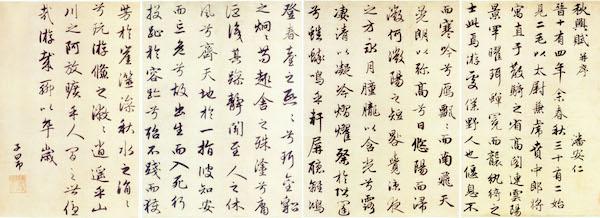 秋興賦 并序
潘安仁
晉十有四年余春秋三十有二始
見二毛以太尉掾兼虎賁中郎將
寓直于散騎之省高閣連雲陽
景罕曜珥蟬冕而襲紈綺之
士此焉游處僕野人也偃息不
而寒吟兮鴈飄飄而南飛天
晃朗以彌高兮日悠陽而浸
微何微陽之短晷覺涼夜
之方永月朣朧以含光兮露
淒清以凝冷熠燿粲於階闥
兮蟋蟀鳴乎軒屏聽離鴻
登春臺之熙熙兮珥金貂
之炯炯苟趣舍之殊塗兮庸
詎識其躁靜聞至人之休
風兮齊天地於一指彼知安
而忘危兮故出生而入死行
投趾於容跡兮殆不踐而獲
芳於崖澨澡秋水之涓涓
兮玩游儵之潎潎逍遙乎山
川之阿放曠乎人間之世優
哉游哉聊以卒歲
子昂